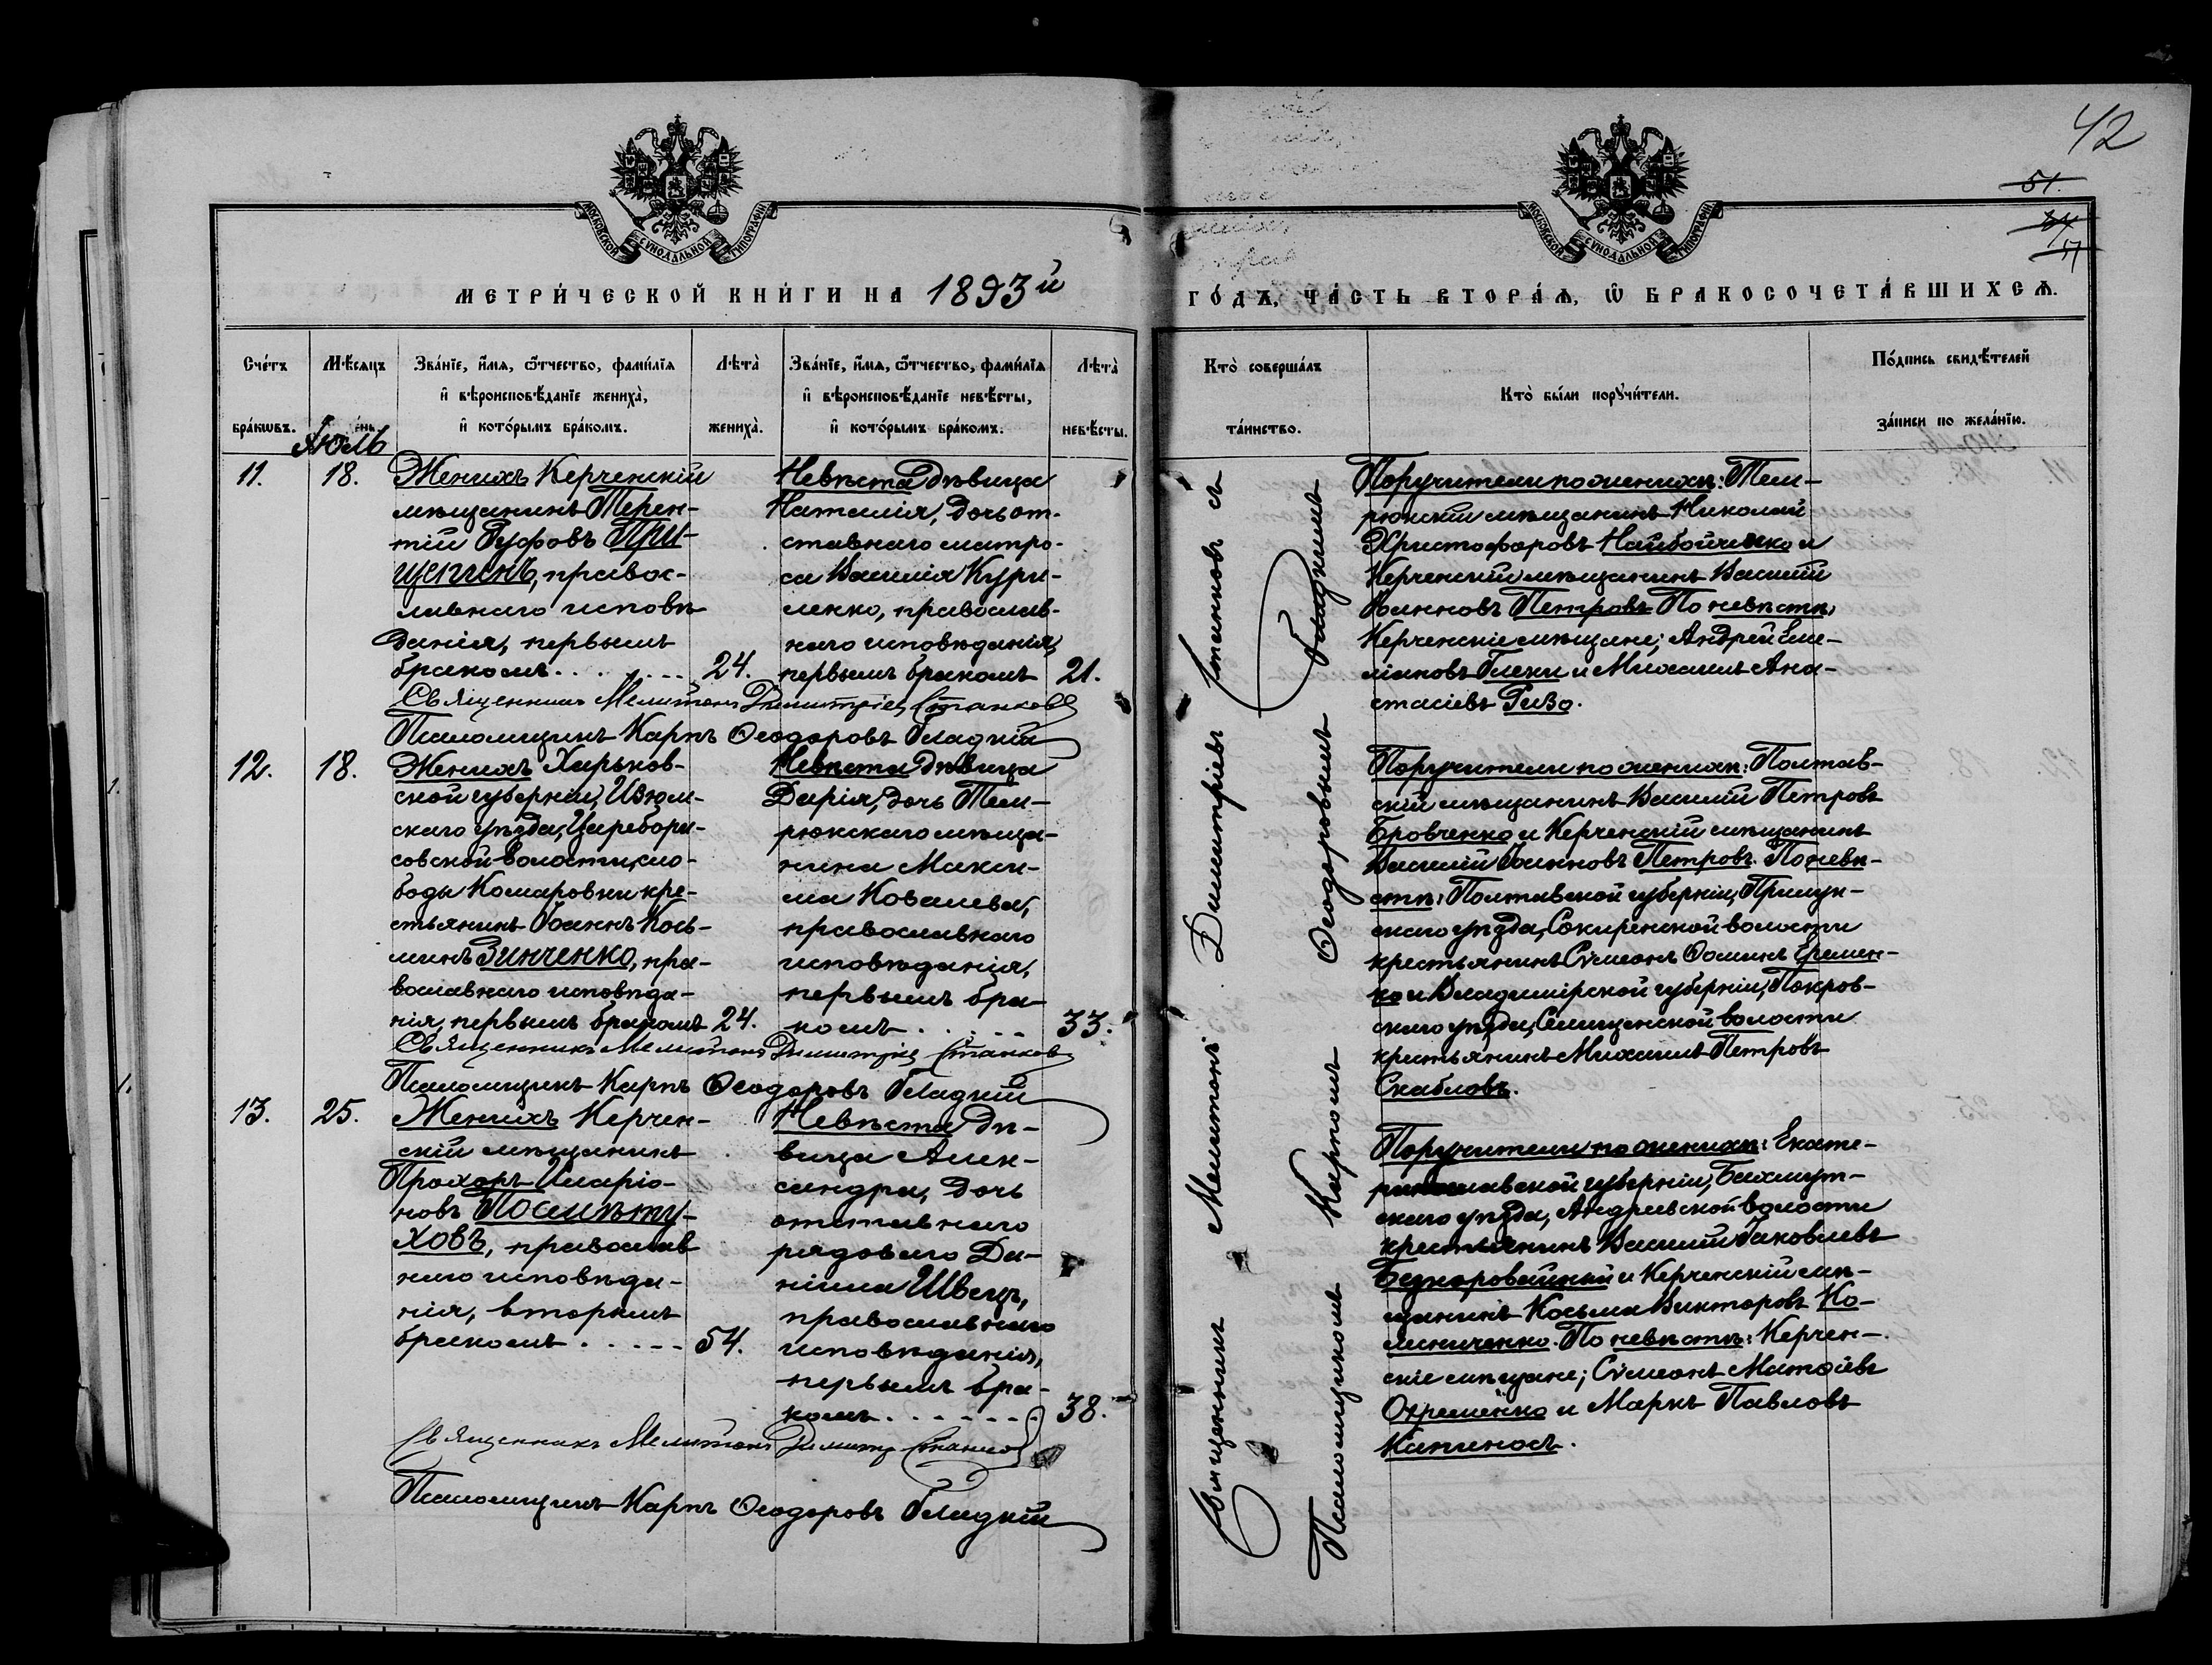 42
51.
МОСКОВСКОЙ СѴНОДАЛЬНОЙ ТИПОГРАФІИ
МОСКОВСКОЙ СѴНОДАЛЬНОЙ ТИПОГРАФІИ
МЕТРИ́ЧЕСКОЙ КНИ́ГИ НА 1893й
ГО́ДЪ, ЧА́СТЬ ВТОРА́Ѧ, Ѿ БРАКОСОЧЕТА́ВШИХСѦ.
Сче́тъ бра́кѡвъ.
Мѣ́сяцъ
Зва́нїе, и́мѧ, ѻ҆́тчество, фами́лїѧ и҆ вѣроисповѣ́данїе жениха̀, и҆ кото́рымъ бра́комъ.
Лѣта̀ жениха̀.
Зва́нїе, и́мѧ, ѻ҆́тчество, фами́лїѧ и҆ вѣроисповѣ́данїе невѣ́сты, и҆ кото́рымъ бра́комъ.
Лѣта̀ невѣ́сты.
Кто̀ соверша́лъ та́инство.
Кто̀ бы́ли порꙋчи́тели.
По́дпись свидѣ́телей за́писи по жела́нїю.
Іюль
11.
18.
Женихъ Керченскій
мѣщанинъ Терен-
тій Руфовъ При-
щепинъ, правос-
лавнаго исповѣ
данія, первымъ
бракомъ . . . . . . 24.
Невѣста дѣвица
Наталія, дочь от-
ставнаго матро-
са Василія Кури-
ленко, православ-
наго исповѣданія,
первымъ бракомъ 21.
Поручители по женихѣ: Тем-
рюкскій мѣщанинъ Николай
Христофоровъ Найбойченко и
Керченскій мѣщанинъ Василій
Іоанновъ Петровъ По невѣстѣ,
Керченскіе мѣщане; Андрей Еми-
ліановъ и Михаилъ Ана-
стасіевъ Ризо.
Священникъ Мелитонъ Димитріев Станковъ
Псаломщикъ Карпъ Ѳеодоровъ Гладкій
12.
18.
Женихъ Харьков-
ской губерніи, Изюм-
скаго уѣзда, Царебори-
совской волости, сло-
боды Комаровки кре-
стьянинъ Іоаннъ Кось-
минъ Зинченко, пра-
вославнаго исповѣда-
нія, первымъ бракомъ 24.
Невѣста дѣвица
Дарія, дочь Тем-
рюкскаго мѣща-
нина Макси-
ма Ковалева,
православнаго
исповѣданія,
первымъ бра-
комъ . . . . . 33.
Поручители по женихѣ: Полтав-
скій мѣщанинъ Василій Петровъ
Бровченко и Керченскій мѣщанинъ
Василій Іоанновъ Петровъ. По невѣ-
стѣ: Полтавской губерніи, Прилук-
скаго уѣзда, Сокиренской волости
крестьянинъ Сѵмеонъ Ѳоминъ Еремен-
ко и Владимірской губерніи, Покров-
скаго уѣзда, Селищенской волости
крестьянинъ Михаилъ Петровъ
Скабловъ.
Священникъ Мелитонъ Димитріев Станковъ
Псаломщикъ Карпъ Ѳеодоровъ Гладкій
13.
25.
Женихъ Керчен-
скій мѣщанинъ
Прохоръ Иларіо-
новъ Посмѣту-
ховъ, православ
наго исповѣда-
нія, вторымъ
бракомъ . . . . . 54.
Невѣста дѣ-
вица Алек-
сандра, дочь
отставнаго
рядового Да-
ніила Швецъ,
православнаго
исповѣданія,
первымъ бра-
комъ . . . . . . . 38.
Поручители по женихѣ: Екате-
ринославской губерніи, Бахмут-
скаго уѣзда, Андреевской волости
крестьянинъ Василій Іаковлевъ
и Керченскій мѣ-
щанинъ Косьма Викторовъ Ко-
лениченко. По невѣстѣ: Керчен-
скіе мѣщане; Сѵмеонъ Матѳіевъ
Охременко и Маркъ Павловъ
Капиносъ.
Священникъ Мелитонъ Димитр Станковъ
Псаломщикъ Карпъ Ѳеодоровъ Гладкій
Священникъ Мелитонъ Димитріевъ Станковъ съ
Псаломщикомъ Карпомъ Ѳеодоровымъ Гладкимъ